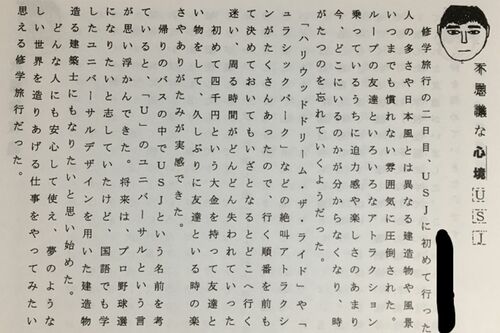 不思議な心境USJ
修学旅行の二日目、USJに初めて行った
人の多さや日本風とは異なる建造物や風景
いつまでも慣れない雰囲気に圧倒された。グ
ループの友達といろいろなアトラクション
乗っているうちに迫力感や楽しさのあまり
今、どこにいるのかが分からなくなり、時
がたつのを忘れていくようだった。
「ハリウッドドリーム・ザ・ライド」や「
ュラシックパーク」などの絶叫アトラクシ
ンがたくさんあったので、行く順番を前も
て決めておいてもいざとなるとどこへ行く
迷い、周る時間がどんどん失われていった
初めて四千円という大金を持って友達と
い物をして、久しぶりに友達といる時の楽
さやありがたみが実感できた。
帰りのバスの中でUSJという名前を考
ていると、「U」のユニバーサルという言
が思い浮かんできた。将来は、プロ野球選
になりたいと志していたけど、国語でも学
したユニバーサルデザインを用いた建造物
造る建築士にもなりたいと思い始めた。
どんな人にも安心して使え、夢のような
しい世界を造りあげる仕事をやってみたい
思える修学旅行だった。